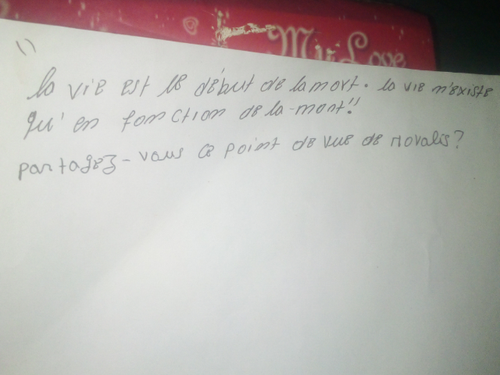 My Love
1)
la vie est le début de la mort. la vie n'existe
qu'en fonction de la mort!!
partagez-vous ce point de vue de Novalis?